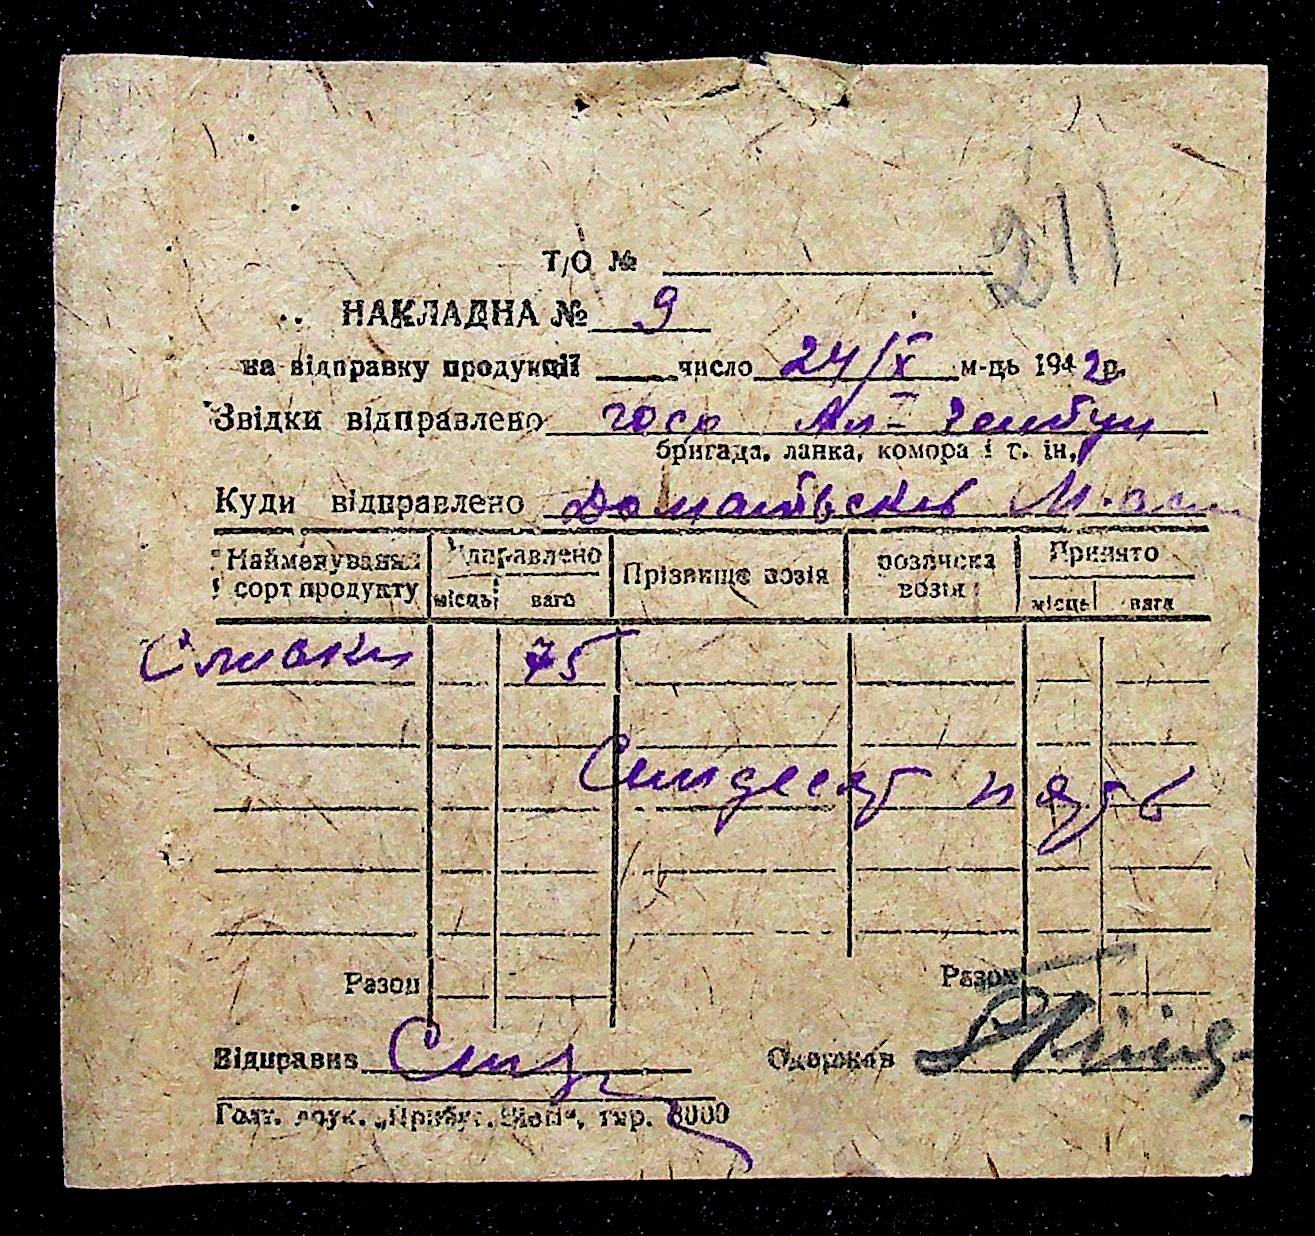 211
Т/О №
НАКЛАДНА № 9
на відправку продукції число 24/X м-ць 1942 р.
Звідки відправлено госр Ал-
бригада, ланка, комора і т. ін.
Куди відправлено
Найменування і сорт продукту Відправлено місць вага Прізвище возія розписка возія Принято місць вага
Сливки 75
Симдесят пять
Разом Разом
Відправив Одержав
Голт. друк. „Прибуг. Вісті“, тир. 8000